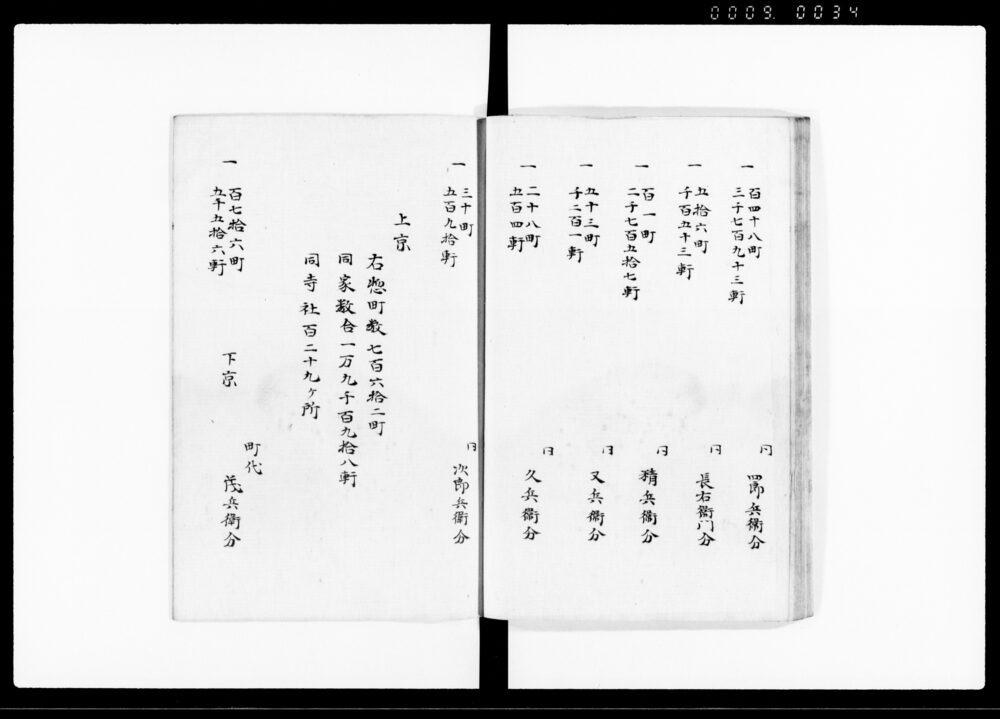 0009.0034
一 百四十八町
三千七百九十三軒
同 四郎兵衛分
一 五拾六町
千百五十三軒
同 長右衛門分
一 百一町
二千七百五拾七軒
同 精兵衛分
一 五十三町
千二百一軒
同 又兵衛分
一 二十八町
五百四軒
同 久兵衛分
一 三十町
五百九拾軒
同 次郎兵衛分
上京
右惣町数七百六拾二町
同家数合一万九千百九拾八軒
同寺社百二十九ヶ所
下京
一 百七拾六町
五千五拾六軒
町代
茂兵衛分